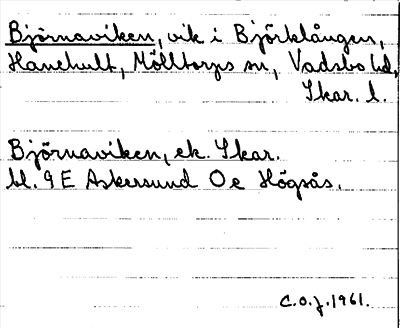 Björnaviken, vik i Björklången,
Hanehult, Mölltorps sn, Vadsbo hd,
Skar. l.
Björnaviken, ek. Skar.
bl. 9 E Askersund Oe Högsås.
C.O.J. 1961.